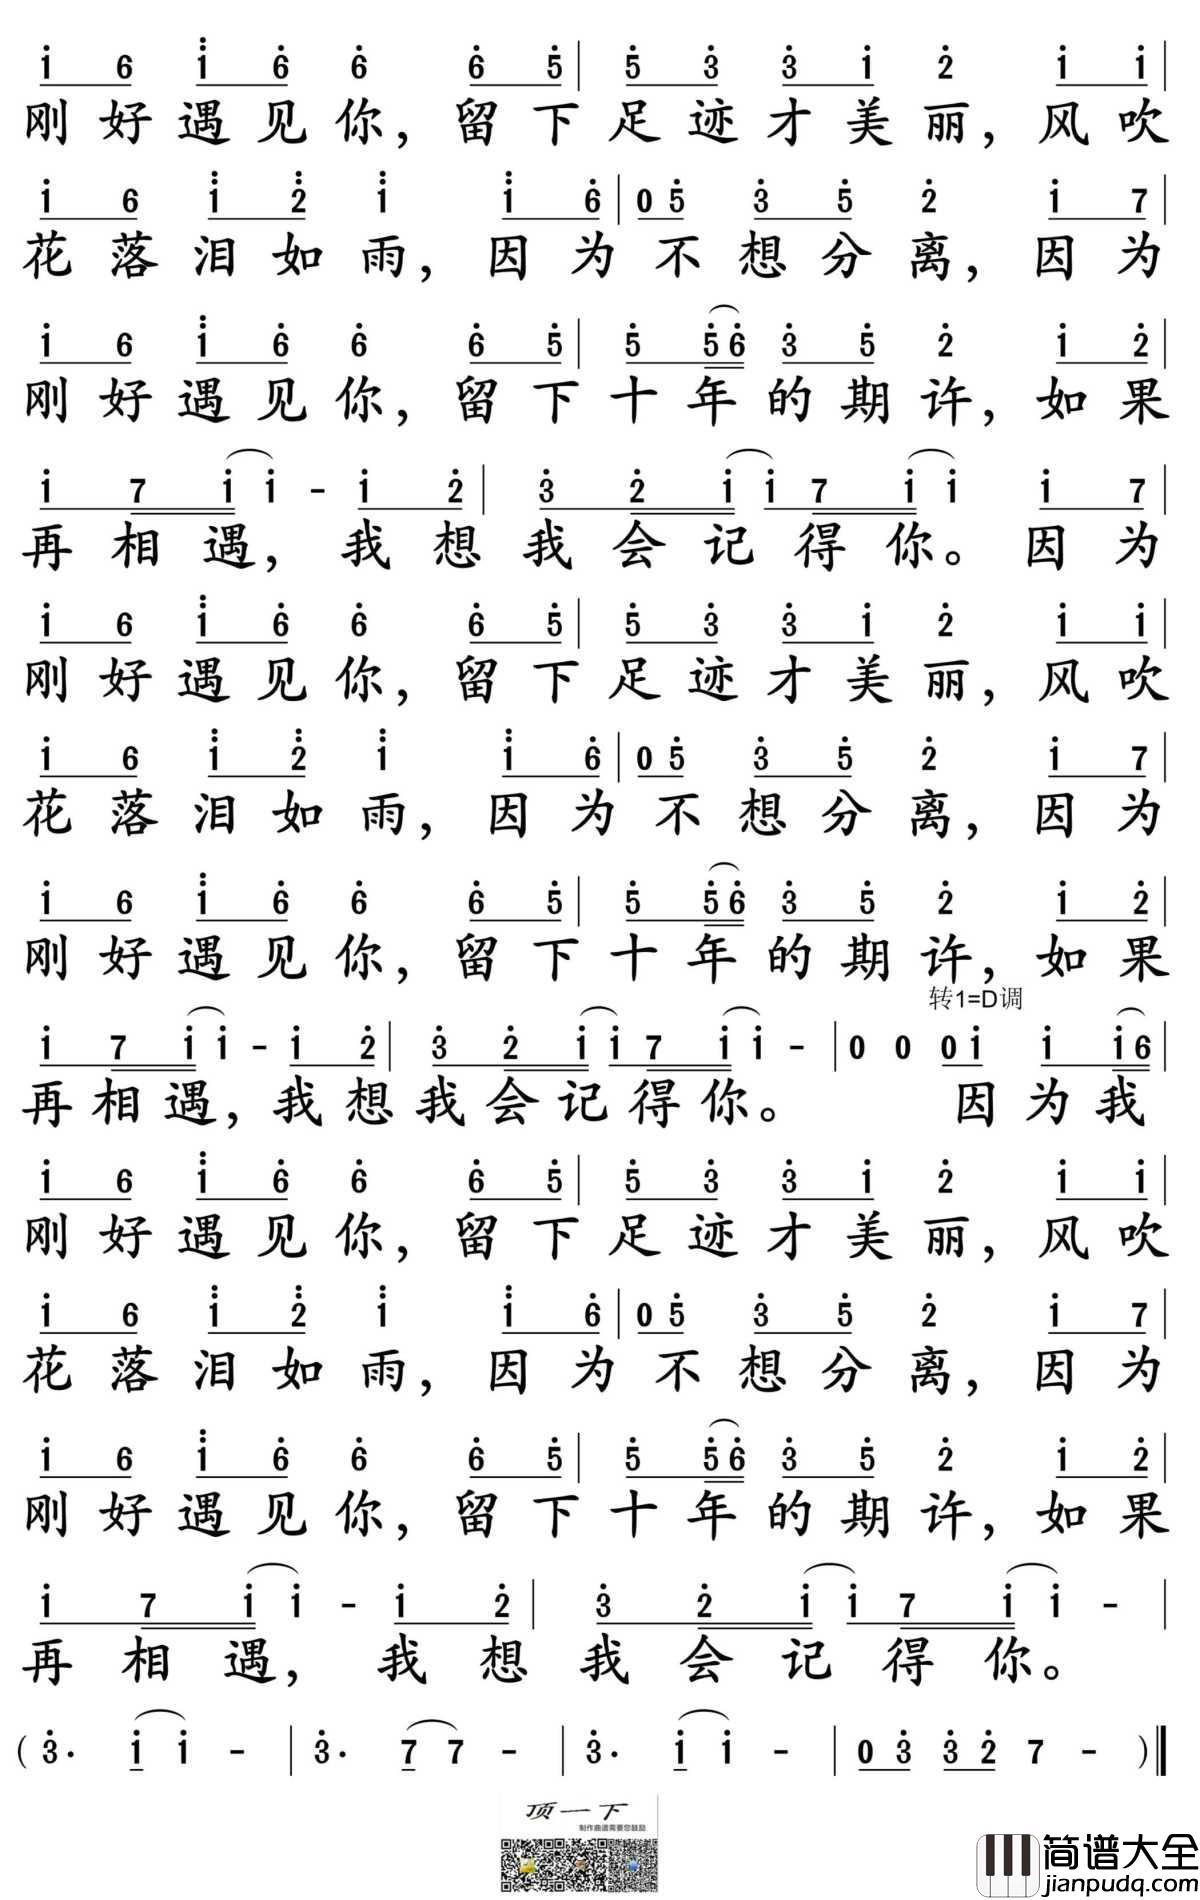 i 6 i 6 6 6 5 | 5 3 3 1 2 i i |
刚好遇见你，留下足迹才美丽，风吹
i 6 i 2 i i 6 | 0 5 3 5 2 i 7 |
花落泪如雨，因为不想分离，因为
i 6 i 6 6 6 5 | 5 5 6 3 5 2 i 2 |
刚好遇见你，留下十年的期许，如果
i 7 i i - i 2 | 3 2 i i 7 i i i 7 |
再相遇，我想我会记得你。因为
i 6 i 6 6 6 5 | 5 3 3 1 2 i i |
刚好遇见你，留下足迹才美丽，风吹
i 6 i 2 i i 6 | 0 5 3 5 2 i 7 |
花落泪如雨，因为不想分离，因为
i 6 i 6 6 6 5 | 5 5 6 3 5 2 i 2 |
刚好遇见你，留下十年的期许，如果
转1=D调
i 7 i i - i 2 | 3 2 i i 7 i i - | 0 0 0 i i i 6 |
再相遇，我想我会记得你。因为我
i 6 i 6 6 6 5 | 5 3 3 1 2 i i |
刚好遇见你，留下足迹才美丽，风吹
i 6 i 2 i i 6 | 0 5 3 5 2 i 7 |
花落泪如雨，因为不想分离，因为
i 6 i 6 6 6 5 | 5 5 6 3 5 2 i 2 |
刚好遇见你，留下十年的期许，如果
i 7 i i - i 2 | 3 2 i i 7 i i - |
再相遇，我想我会记得你。
( 3· i i - | 3· 7 7 - | 3· i i - | 0 3 3 2 7 - )
顶一下
制作曲谱需要您鼓励
简谱大全
jianpudq.com